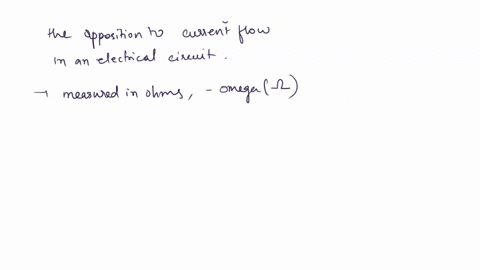 the opposition to current flow
in an electrical circuit.
→ measured in ohms, - omega (Ω)